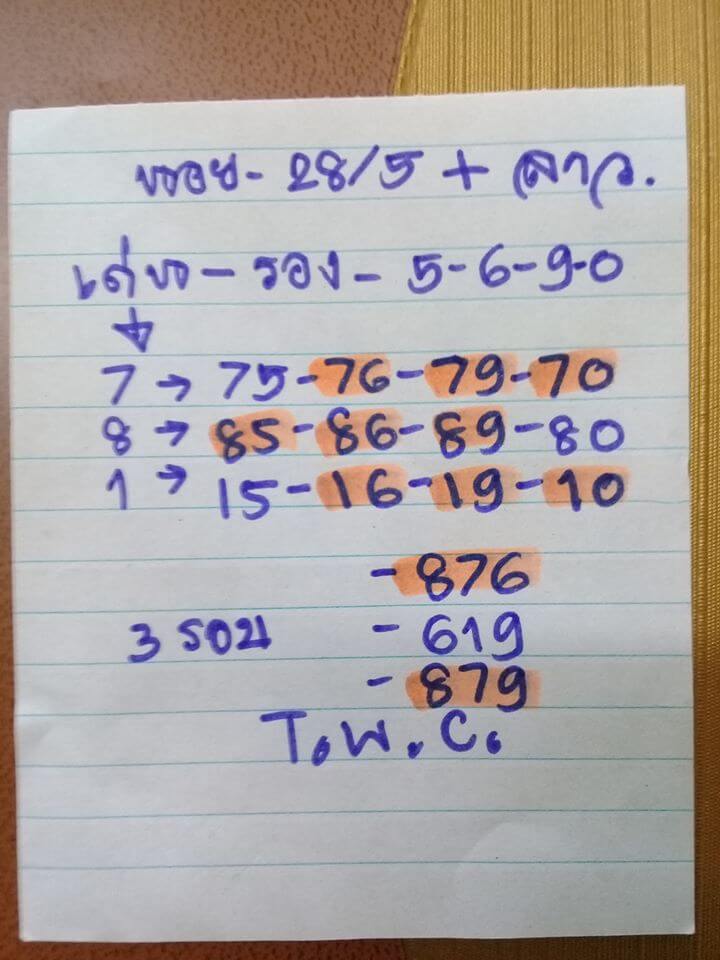 ฮอย - 28/5 + ลาว.
เด่น - รอง - 5-6-9-0
↓
7 → 75-76-79-70
8 → 85-86-89-80
1 → 15-16-19-10
- 876
3 รอบ - 619
- 879
T.W.C.